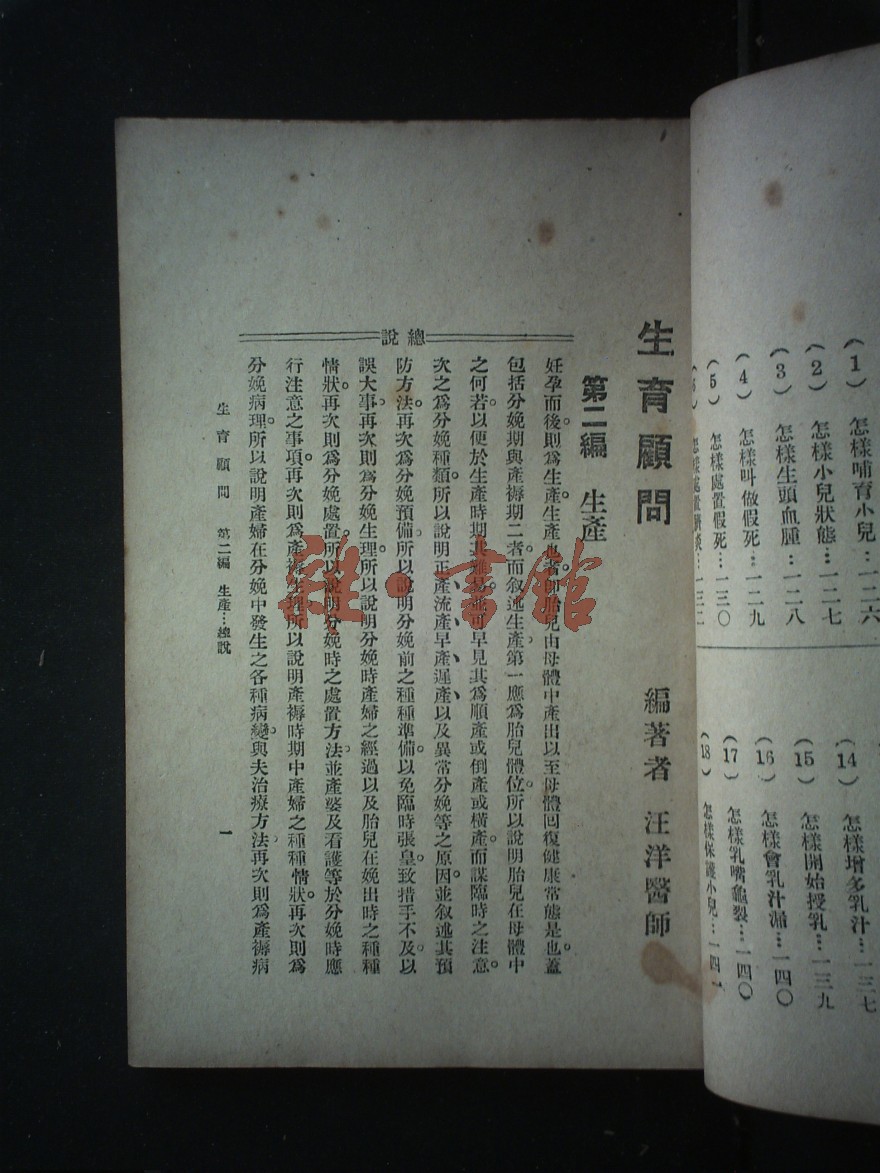 (1) 怎樣哺育小兒…一二六
(2) 怎樣小兒狀態…一二七
(3) 怎樣生頭血腫…一二八
(4) 怎樣叫做假死…一二九
(5) 怎樣處置假死…一三〇
怎樣處置臍炎…一三二
(14) 怎樣增多乳汁…一三七
(15) 怎樣開始授乳…一三九
(16) 怎樣會乳汁漏…一四〇
(17) 怎樣乳嘴龜裂…一四〇
(18) 怎樣保護小兒…一四一
生育顧問
編著者 汪洋醫師
第二編 生產
總說
妊孕而後。則為生產。生產也者。即胎兒由母體中產出以至母體回復健康常態是也。蓋
包括分娩期與產褥期二者。而叙述生產。第一應為胎兒體位。所以說明胎兒在母體中
之何若。以便於生產時期其難易。並可早見其為順產或倒產或橫產。而謀臨時之注意。
次之為分娩種類。所以說明正產、流產、早產、遲產、以及異常分娩等之原因。並叙述其預
防方法。再次為分娩預備。所以說明分娩前之種種準備。以免臨時張皇。致措手不及。以
誤大事。再次則為分娩生理。所以說明分娩時產婦之經過以及胎兒在娩出時之種種
情狀。再次則為分娩處置。所以說明分娩時之處置方法。並產婆及看護等於分娩時應
行注意之事項。再次則為產褥生理。所以說明產褥時期中產婦之種種情狀。再次則為
分娩病理。所以說明產婦在分娩中發生之各種病變。與夫治療方法。再次則為產褥病
生育顧問 第二編 生產…總說
一
雜·書館